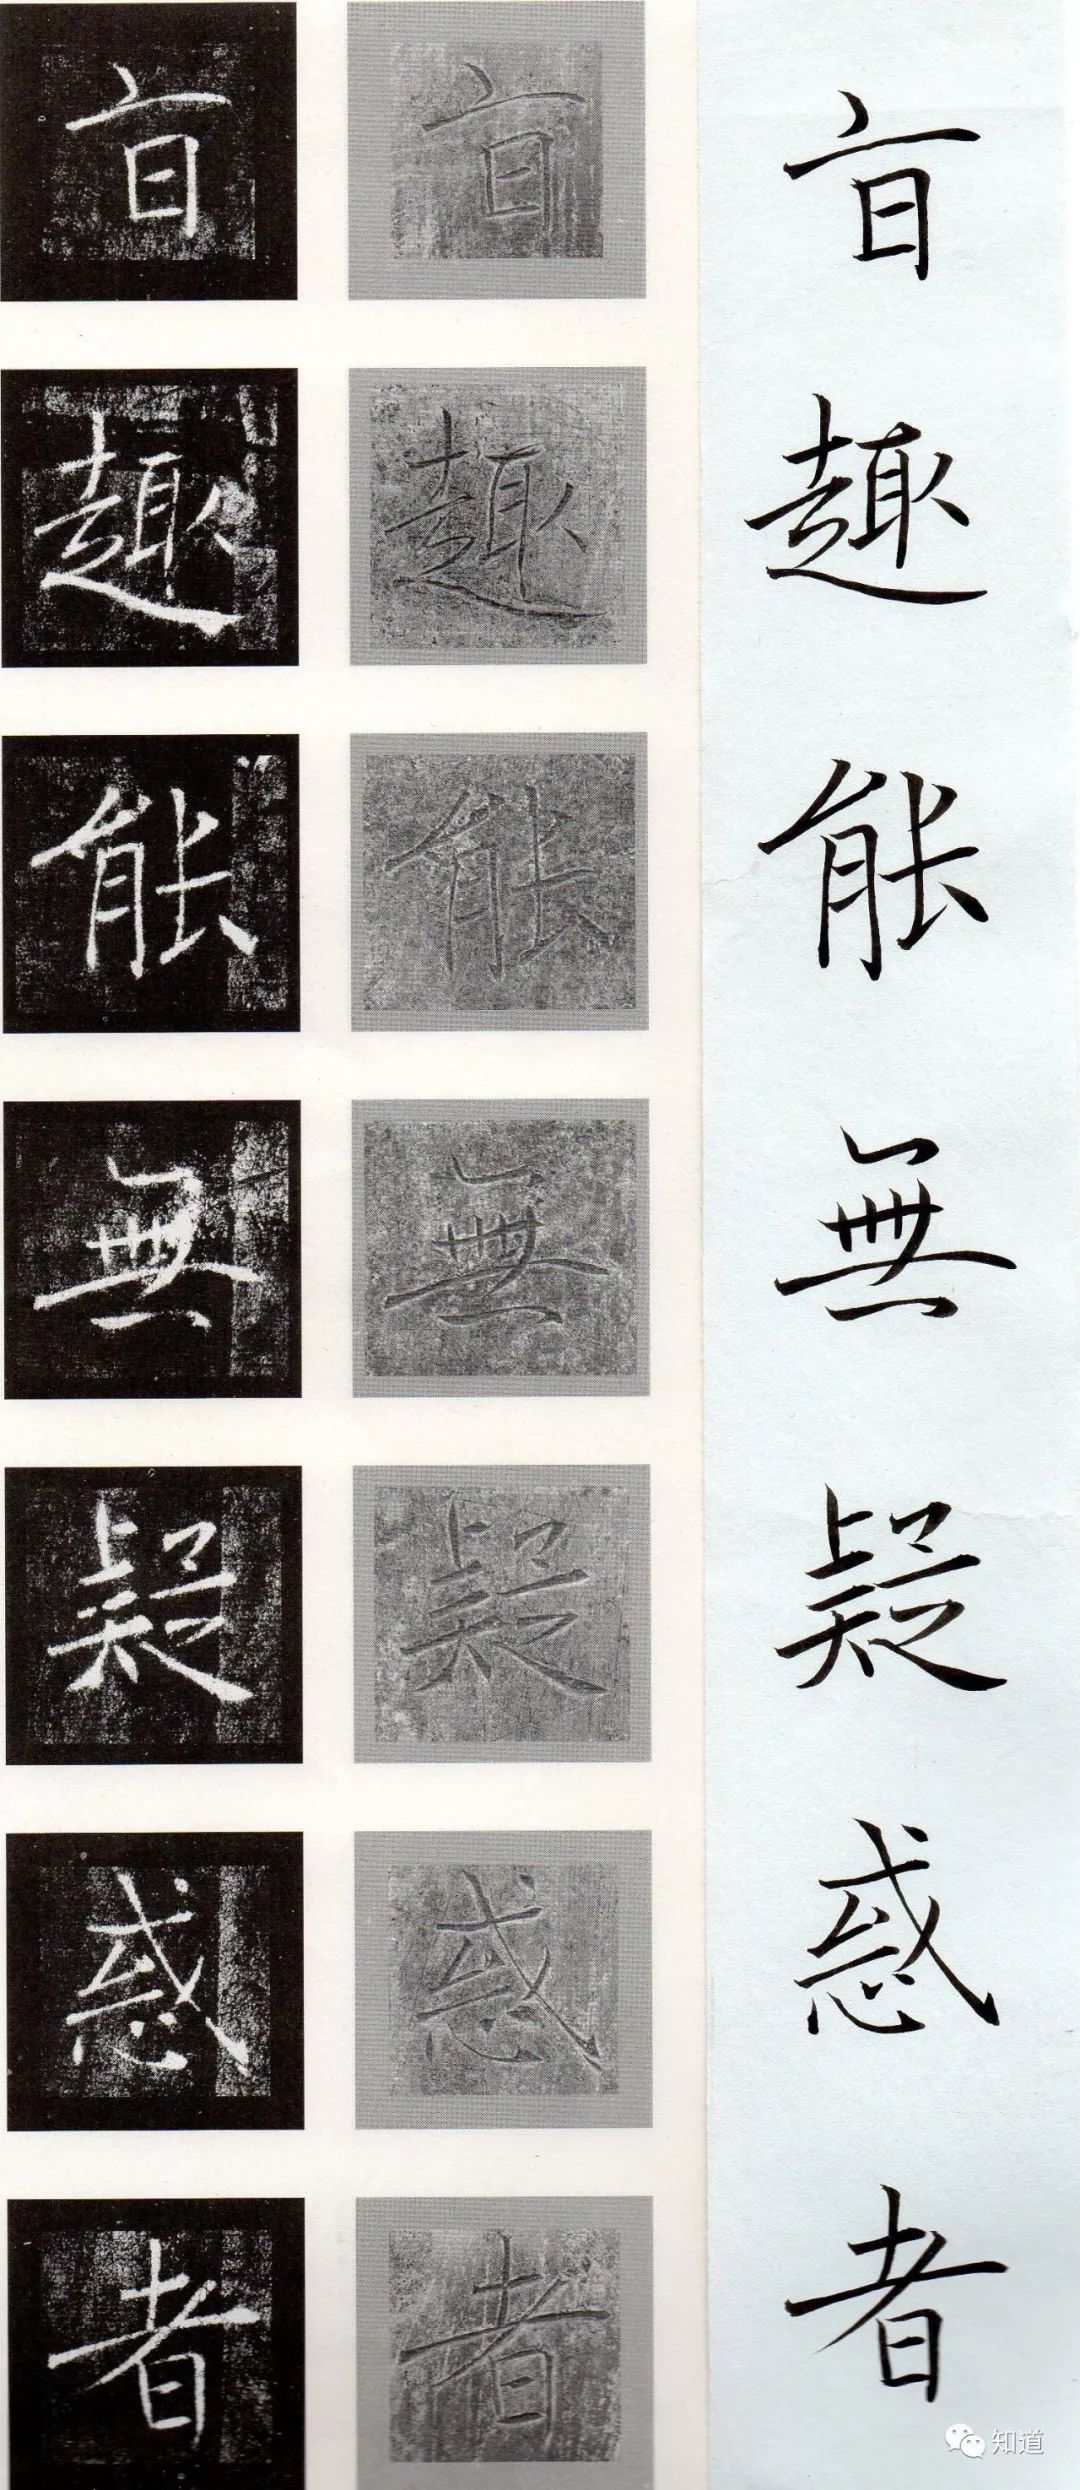 旨趣能無疑惑者
旨趣能無疑惑者
旨趣能無疑惑者
知道